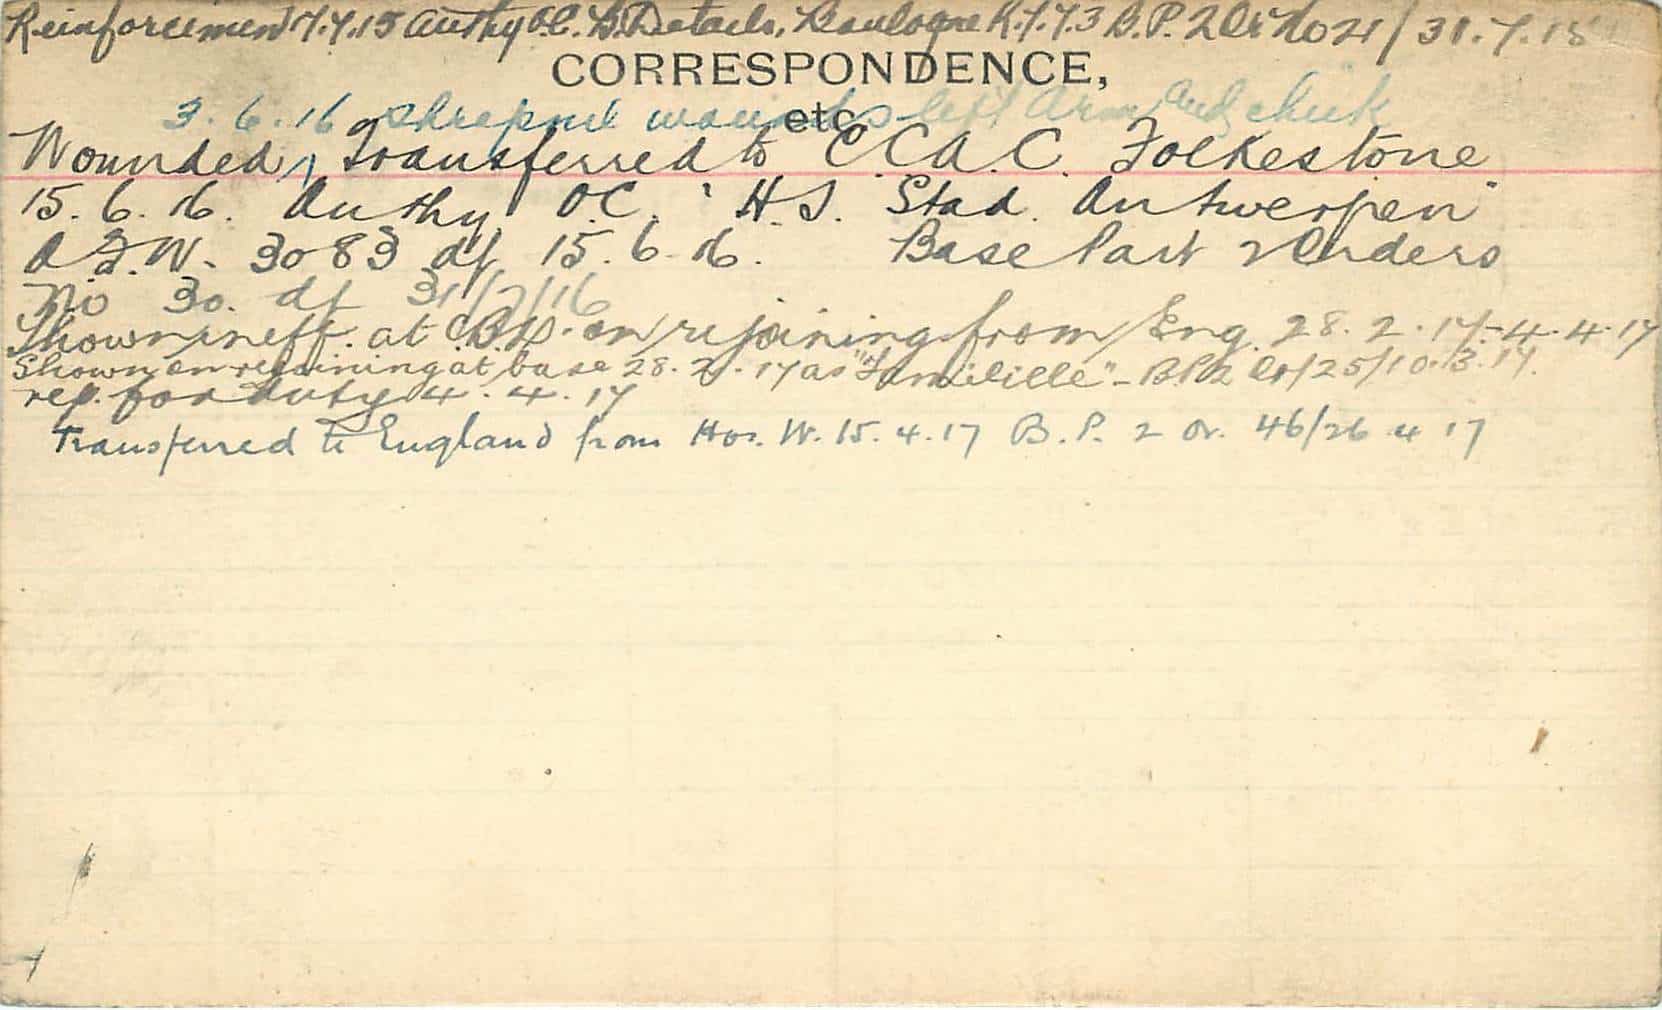 Reinforcement 7.7.15 Authy O.C. B. Details, Boulogne K.1.7.3 B.P. 2 Or No 21/31.7.15
CORRESPONDENCE,
etc.
3.6.16 shrapnel wounds left arm and cheek
Wounded, Transferred to C.C.A.C. Folkestone
15.6.16. Authy O.C. "H.S. Stad Antwerpen"
A.F.W. 3083 df 15.6.16. Base Part 2 Orders
No 30. df 31/7/16
Shown ineff. at C.B.D. on rejoining from Eng. 28.2.17-4.4.17
Shown on rejoining at base 28.2.17 as "Familille" - BP2 Or/25/10.3.17.
rep. for duty 4.4.17
Transferred to England from Hos. W. 15.4.17 B.P. 2 Or. 46/26 4 17